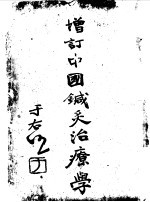 增訂中國鍼灸治療學
于右任